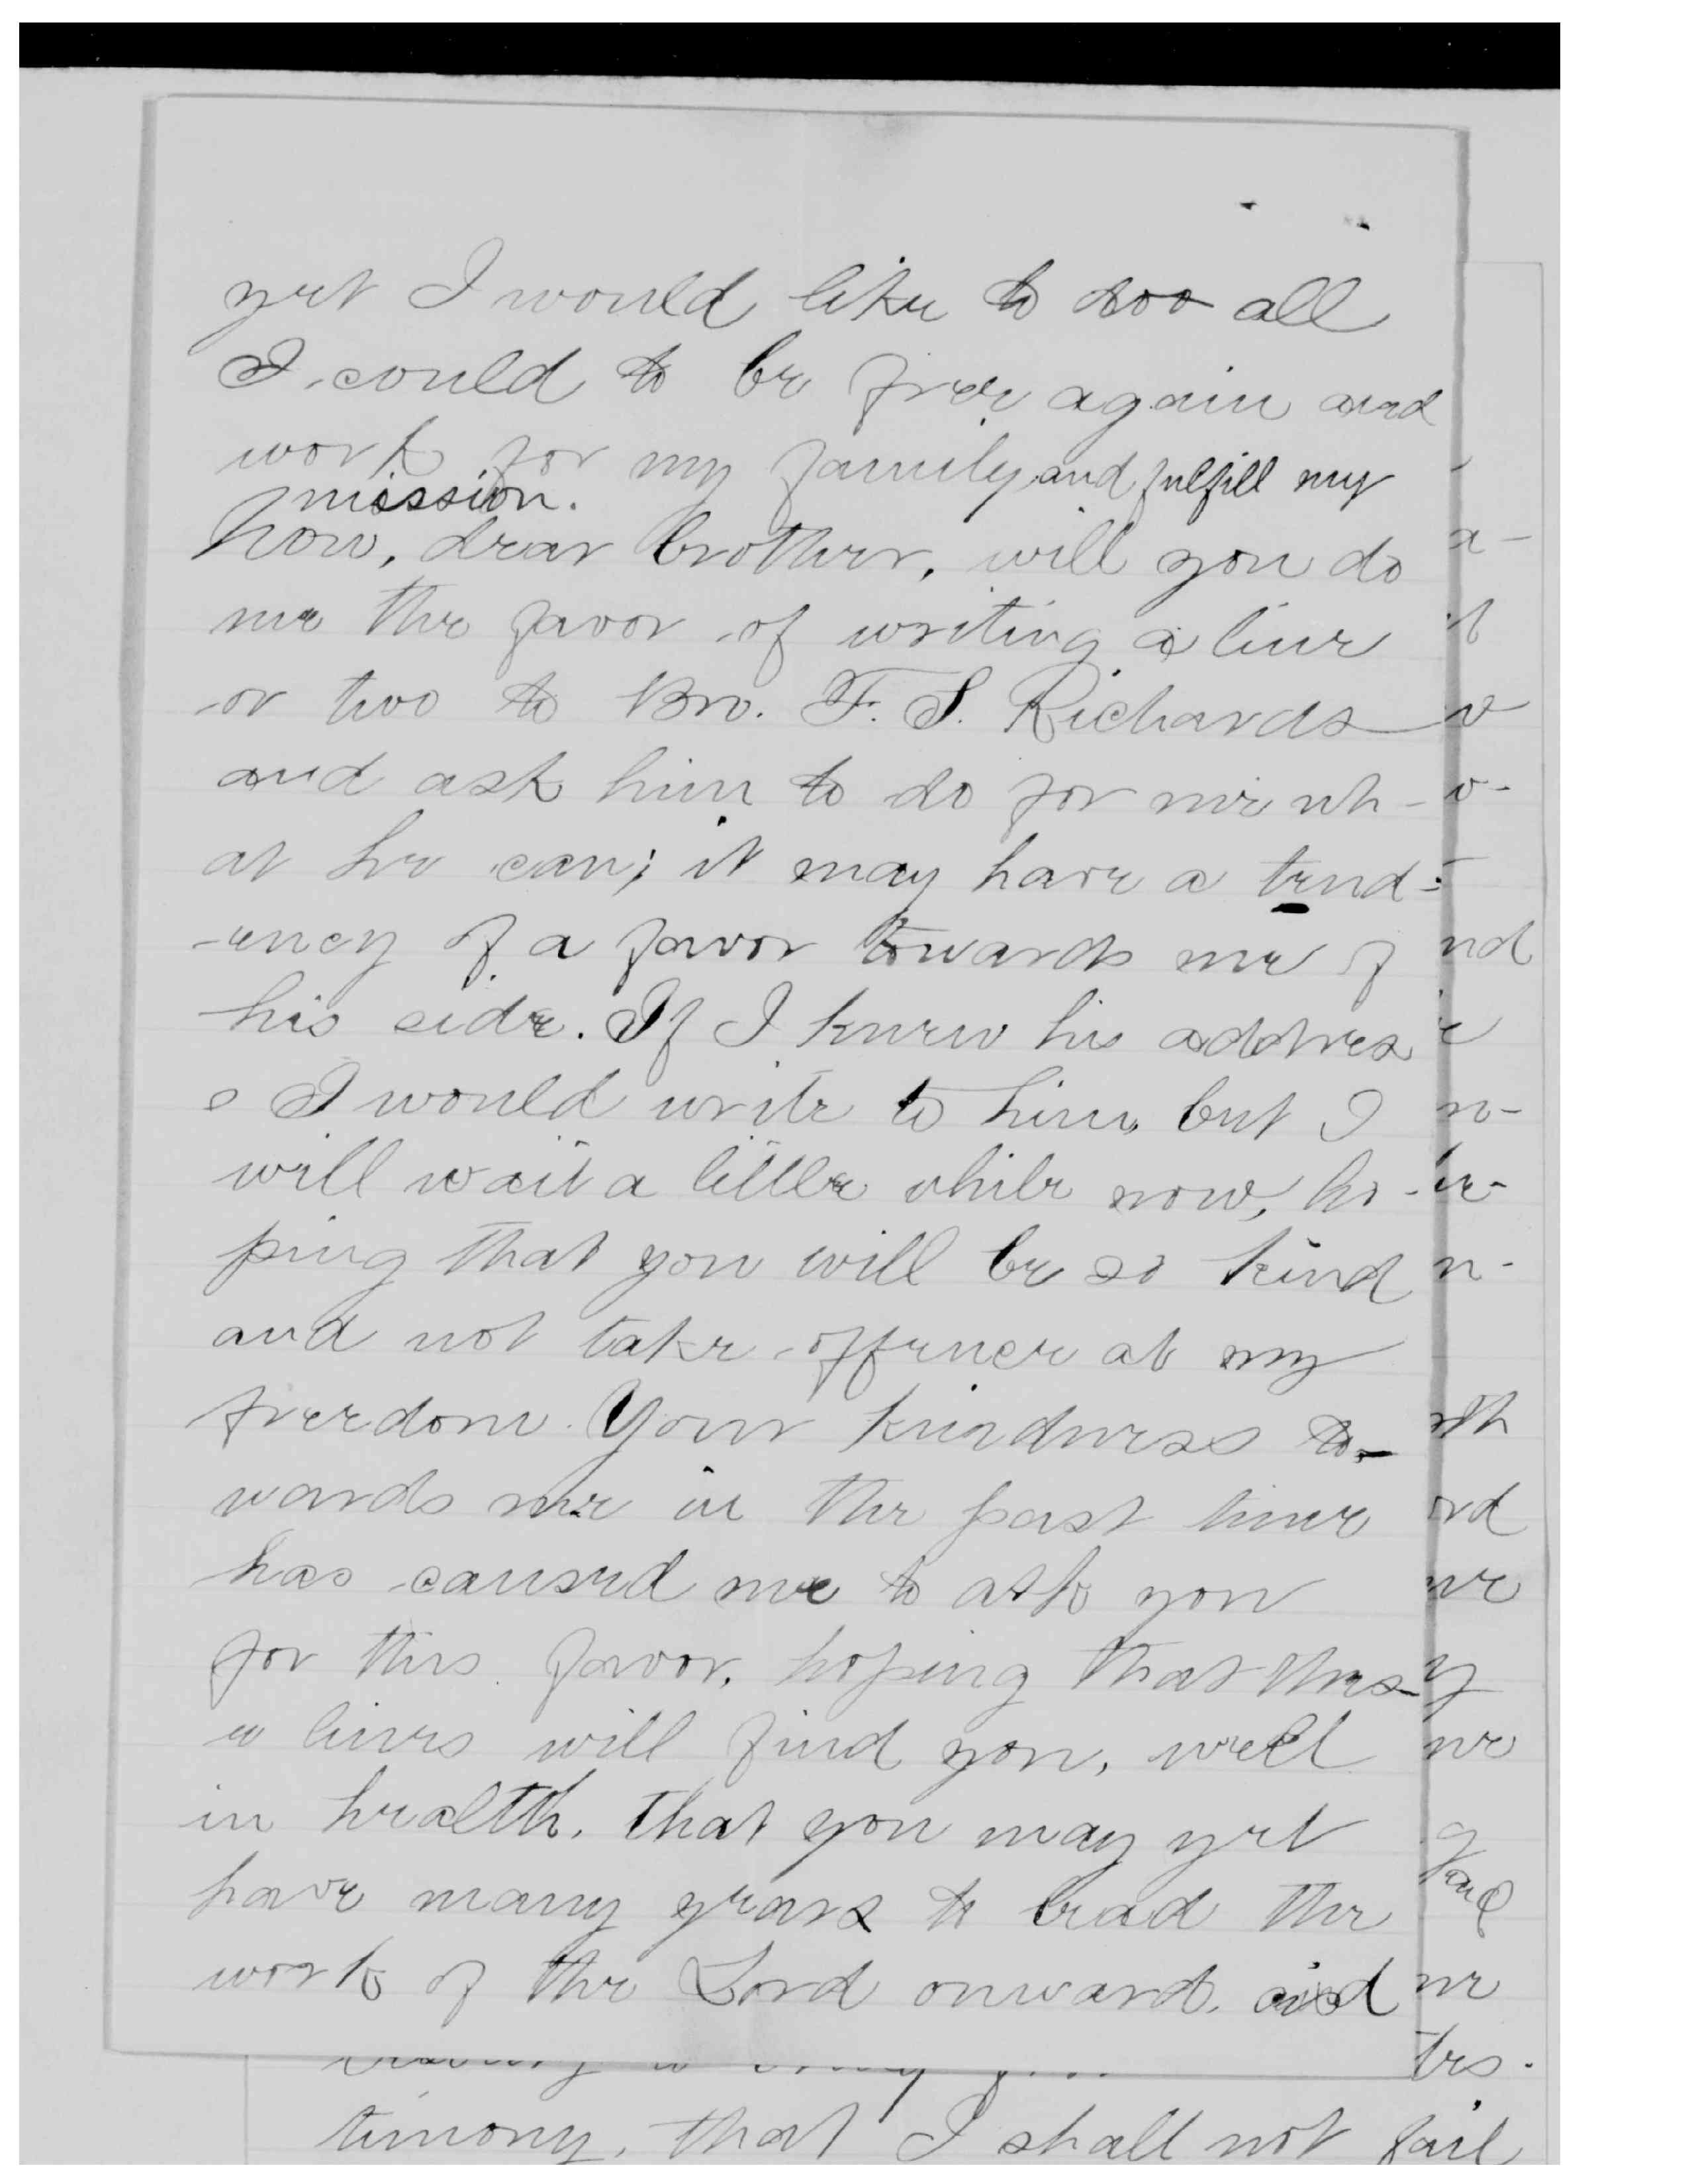 yet I would like to doo all
I could to be free again and
work for my family and fulfill my
mission.
Now, dear brother, will you do
me the favor of writing a line
or two to Bro. F. S. Richards
and ask him to do for me wh-
at he can; it may have a tend-
-ency of a favor towards me of
his side. If I knew his addres
s I would write to him, but I
will wait a little while now, ho-
ping that you will be so kind
and not take offence at my
freedom. Your kindness to-
wards me in the past time
has caused me to ask you
for this favor, hoping that thes-
e lines will find you, well
in health, that you may yet
have many years to lead the
work of the Lord onward. and
timony, that I shall not fail